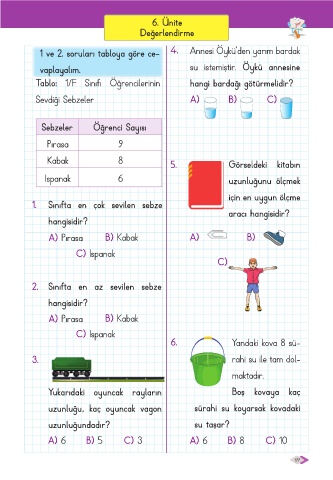 6. Ünite
Değerlendirme
1 ve 2. soruları tabloya göre ce-
vaplayalım.
Tablo: 1/F Sınıfı Öğrencilerinin
Sevdiği Sebzeler
Sebzeler Öğrenci Sayısı
Pırasa 9
Kabak 8
Ispanak 6
1. Sınıfta en çok sevilen sebze
hangisidir?
A) Pırasa B) Kabak
C) Ispanak
2. Sınıfta en az sevilen sebze
hangisidir?
A) Pırasa B) Kabak
C) Ispanak
3.
Yukarıdaki oyuncak rayların
uzunluğu, kaç oyuncak vagon
uzunluğundadır?
A) 6 B) 5 C) 3
4. Annesi Öykü'den yarım bardak
su istemiştir. Öykü annesine
hangi bardağı götürmelidir?
A) B) C)
5. Görseldeki kitabın
uzunluğunu ölçmek
için en uygun ölçme
aracı hangisidir?
A) B)
C)
6. Yandaki kova 8 sü-
rahi su ile tam dol-
maktadır.
Boş kovaya kaç
sürahi su koyarsak kovadaki
su taşar?
A) 6 B) 8 C) 10